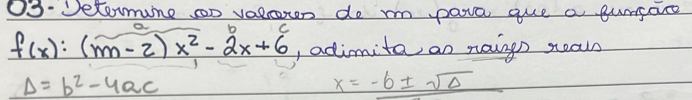 03-Determine os valores de m para que a função
a b c
f(x): (m-2)x²-2x+6, adimita as raizes reais
Δ=b²-4ac x=-b±√Δ